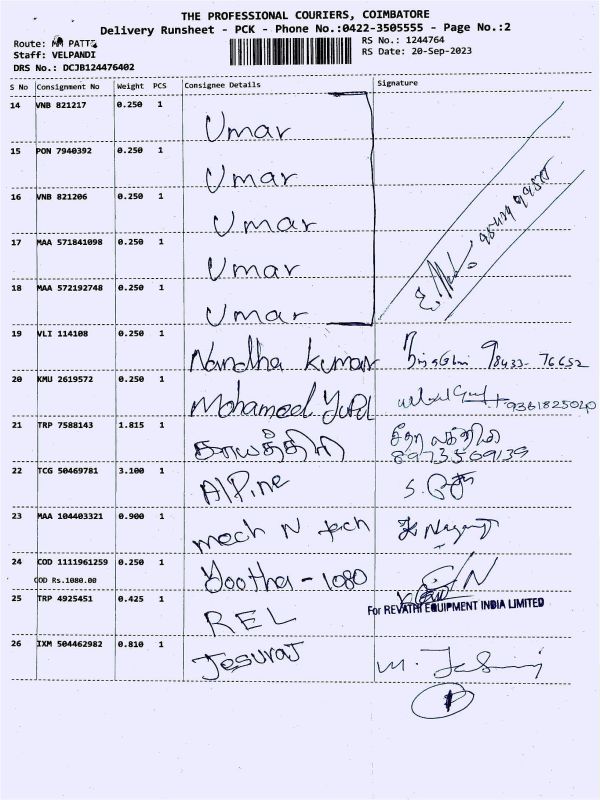 THE PROFESSIONAL COURIERS, COIMBATORE
Delivery Runsheet - PCK - Phone No.:0422-3505555 - Page No.:2
Route: PATTI RS No.: 1244764
Staff: VELPANDI RS Date: 20-Sep-2023
DRS No.: DCJB124476402
S No Consignment No Weight PCS Consignee Details Signature
14 VNB 821217 0.250 1 Umar
15 PON 7940392 0.250 1 Umar
16 VNB 821206 0.250 1 Umar
17 MAA 571841098 0.250 1 Umar
18 MAA 572192748 0.250 1 Umar
19 VLI 114108 0.250 1 Nandha Kumar 98433-76652
20 KMU 2619572 0.250 1 Mohameed 9361825020
21 TRP 7588143 1.815 1 காயத்திரி 8973569139
22 TCG 50469781 3.100 1 AlPine
23 MAA 104403321 0.900 1 mech N tech
24 COD 1111961259 0.250 1 Yootha - 1080
COD Rs.1080.00
25 TRP 4925451 0.425 1 REL For REVATHI EQUIPMENT INDIA LIMITED
26 IXM 504462982 0.810 1 Jesuraj